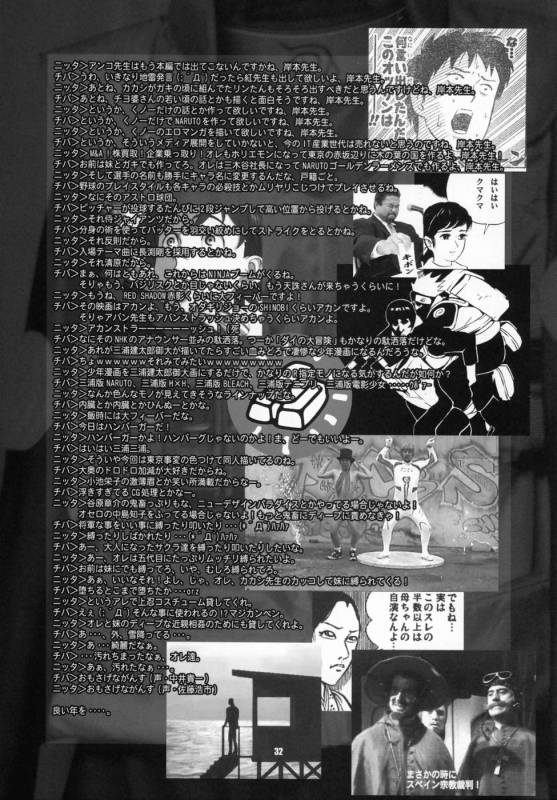 ニッタ>アンコ先生はもう本編では出てこないんですかね、岸本先生。
チバ>うわ、いきなり地雷発言(;゚Д゚)だったら紅先生も出して欲しいよ、岸本先生。
ニッタ>あとね、カカシがガキの頃に組んでたリンたんもそろそろ出すべきだと思うんですけどね、岸本先生。
チバ>あとね、チヨ婆さんの若い頃の話とかも描くと面白そうですね、岸本先生。
ニッタ>というか、くノ一だけの話とか作って欲しいですね、岸本先生。
チバ>というか、くノ一だけでNARUTOを作って欲しいですね、岸本先生。
ニッタ>というか、くノ一のエロマンガを描いて欲しいですね、岸本先生。
チバ>というか、そういうメディア展開をしていかないと、今のIT産業世代は売れないと思うのですね、岸本先生。
ニッタ>M&A!株買取!企業乗っ取り!オレもホリエモンになって東京の赤坂辺りに木の葉の国を作るよ、岸本先生!
チバ>お前は妹とカギでも作ってろ、オレは三木谷社長になってNARUTOゴールデンイーグルスでも作るよ、岸本先生。
ニッタ>そして選手の名前も勝手にキャラ名に変更するんだな、戸籍ごと。
チバ>野球のプレイスタイルも各キャラの必殺技とかムリヤリこじつけてプレイさせるね。
ニッタ>なにそのアストロ球団。
チバ>ピッチャーが投球するたんびに2段ジャンプして高い位置から投げるとかね。
ニッタ>それ侍ジャイアンツだから。
チバ>分身の術を使ってバッターを羽交い絞めにしてストライクをとるとかね。
ニッタ>それ反則だから。
チバ>入場テーマ曲に長渕剛を採用するとかね。
ニッタ>それ清原だから。
チバ>まぁ、何はともあれ、これからはNINJAブームがくるね。
そりゃもう、バジリスクとか目じゃないくらい、もう天誅さんが来ちゃうくらいに!
ニッタ>もうね、RED SHADOW赤影くらいに大フィーバーですよ!
チバ>その映画はアカンよ、もう、オダギリジョーのSHINOBIくらいアカンですよ。
そりゃアバン先生もアバンストラッシュ打っちゃうくらいアカンよ。
ニッタ>アカンストラーーーーーーーッシュ!(死)
チバ>なにそのNHKのアナウンサー並みの駄洒落。つーか「ダイの大冒険」もかなりの駄洒落だけどな。
ニッタ>あれが三浦建太郎御大が描いてたらすごい血みどろで凄惨な少年漫画になるんだろうな。
チバ>ちょwwwwwそれみてみたいwwwwwwww
ニッタ>少年漫画を三浦建太郎御大に描画するだけで、かなりのR指定モノになる気がするんだが如何か?
チバ>三浦版NARUTO、三浦版H×H、三浦版BLEACH、三浦版テニプリ、三浦版電影少女
ニッタ>なんか色んなモノが見えてきそうなラインナップだな。
チバ>内臓とか内臓とかひんぬーとかな。
ニッタ>飯時には大フィーバーだな。
チバ>今日はハンバーガーだ!
ニッタ>ハンバーガーかよ!ハンバーグじゃないのかよ!ま、どーでもいいよー。
チバ>はいはい三浦三浦。
ニッタ>そういや今回は東京事変の色つけて同人描いてるのね。
チバ>大奥のドロドロ加減が大好きだからね。
ニッタ>小池栄子の激薄眉とか笑い所満載だからなー。
チバ>浮きすぎてるCG処理とかなー。
ニッタ>谷原章介の鬼畜っぷりもな、ニューデザインパラダイスとかやってる場合じゃないよ!
オセロの中島知子をぶってる場合じゃないよ!もっと鬼畜にディープに責めなきゃ!
チバ>将軍な事をいい事に縛ったり叩いたり…(*゚Д゚)ハァハァ
ニッタ>縛ったりしばかれたり…(*゚Д゚)ハァハァ
チバ>あー、大人になったサクラ達を縛ったり叩いたりしたいな。
ニッタ>あー、オレは五代目にたっぷりムッチリ縛られたいよ。
チバ>お前は妹にでも縛ってろ、いや、むしろ縛られてろ。
ニッタ>あぁ、いいなそれ!よし、じゃ、オレ、カカシ先生のカッコして妹に縛られてくる!
チバ>堕ちるとこまで堕ちたか…orz
ニッタ>というアレで上忍コスチューム貸してくれ。
チバ>え(;゚Д゚)そんな事に使われるの!?マジカンベン。
ニッタ>オレと妹のディープな近親相姦のためにも貸してくれよ。
チバ>あ…、外、雪降ってる…。
ニッタ>あ…綺麗だなぁ。
チバ>…汚れちまったなぁ、オレ達。
ニッタ>あぁ、汚れたなぁ…。
チバ>おもさげながんす(声・中井貴一)
ニッタ>おもさげながんす(声・佐藤浩市)
良い年を…。
な…
何言い出すんだ
このオッサンは
はいはい
クマクマ
キボン
でもね…
実は
このスレの
半数以上は
母ちゃんの
自演なんよ…
まさかの時に
スペイン宗教裁判!
32